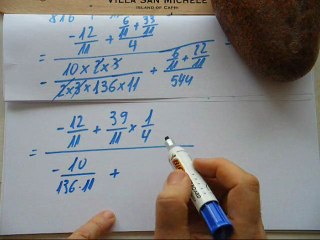 VILLA SAN MICHELE
ISLAND OF CAPRI
810
-12/11 + (6/11 + 33/11)/4
= 
- (10 × 2 × 3)/(2 × 3 × 136 × 11) + (6/11 + 12/11)/544
-12/11 + 39/11 × 1/4
=
- 10/(136 · 11) +